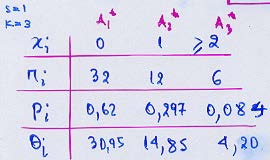 S=1
K=3
A₁* A₂* A₃*
xᵢ 0 1 ≥2
nᵢ 32 12 6
Pᵢ 0,62 0,297 0,084
θᵢ 30,95 14,85 4,20